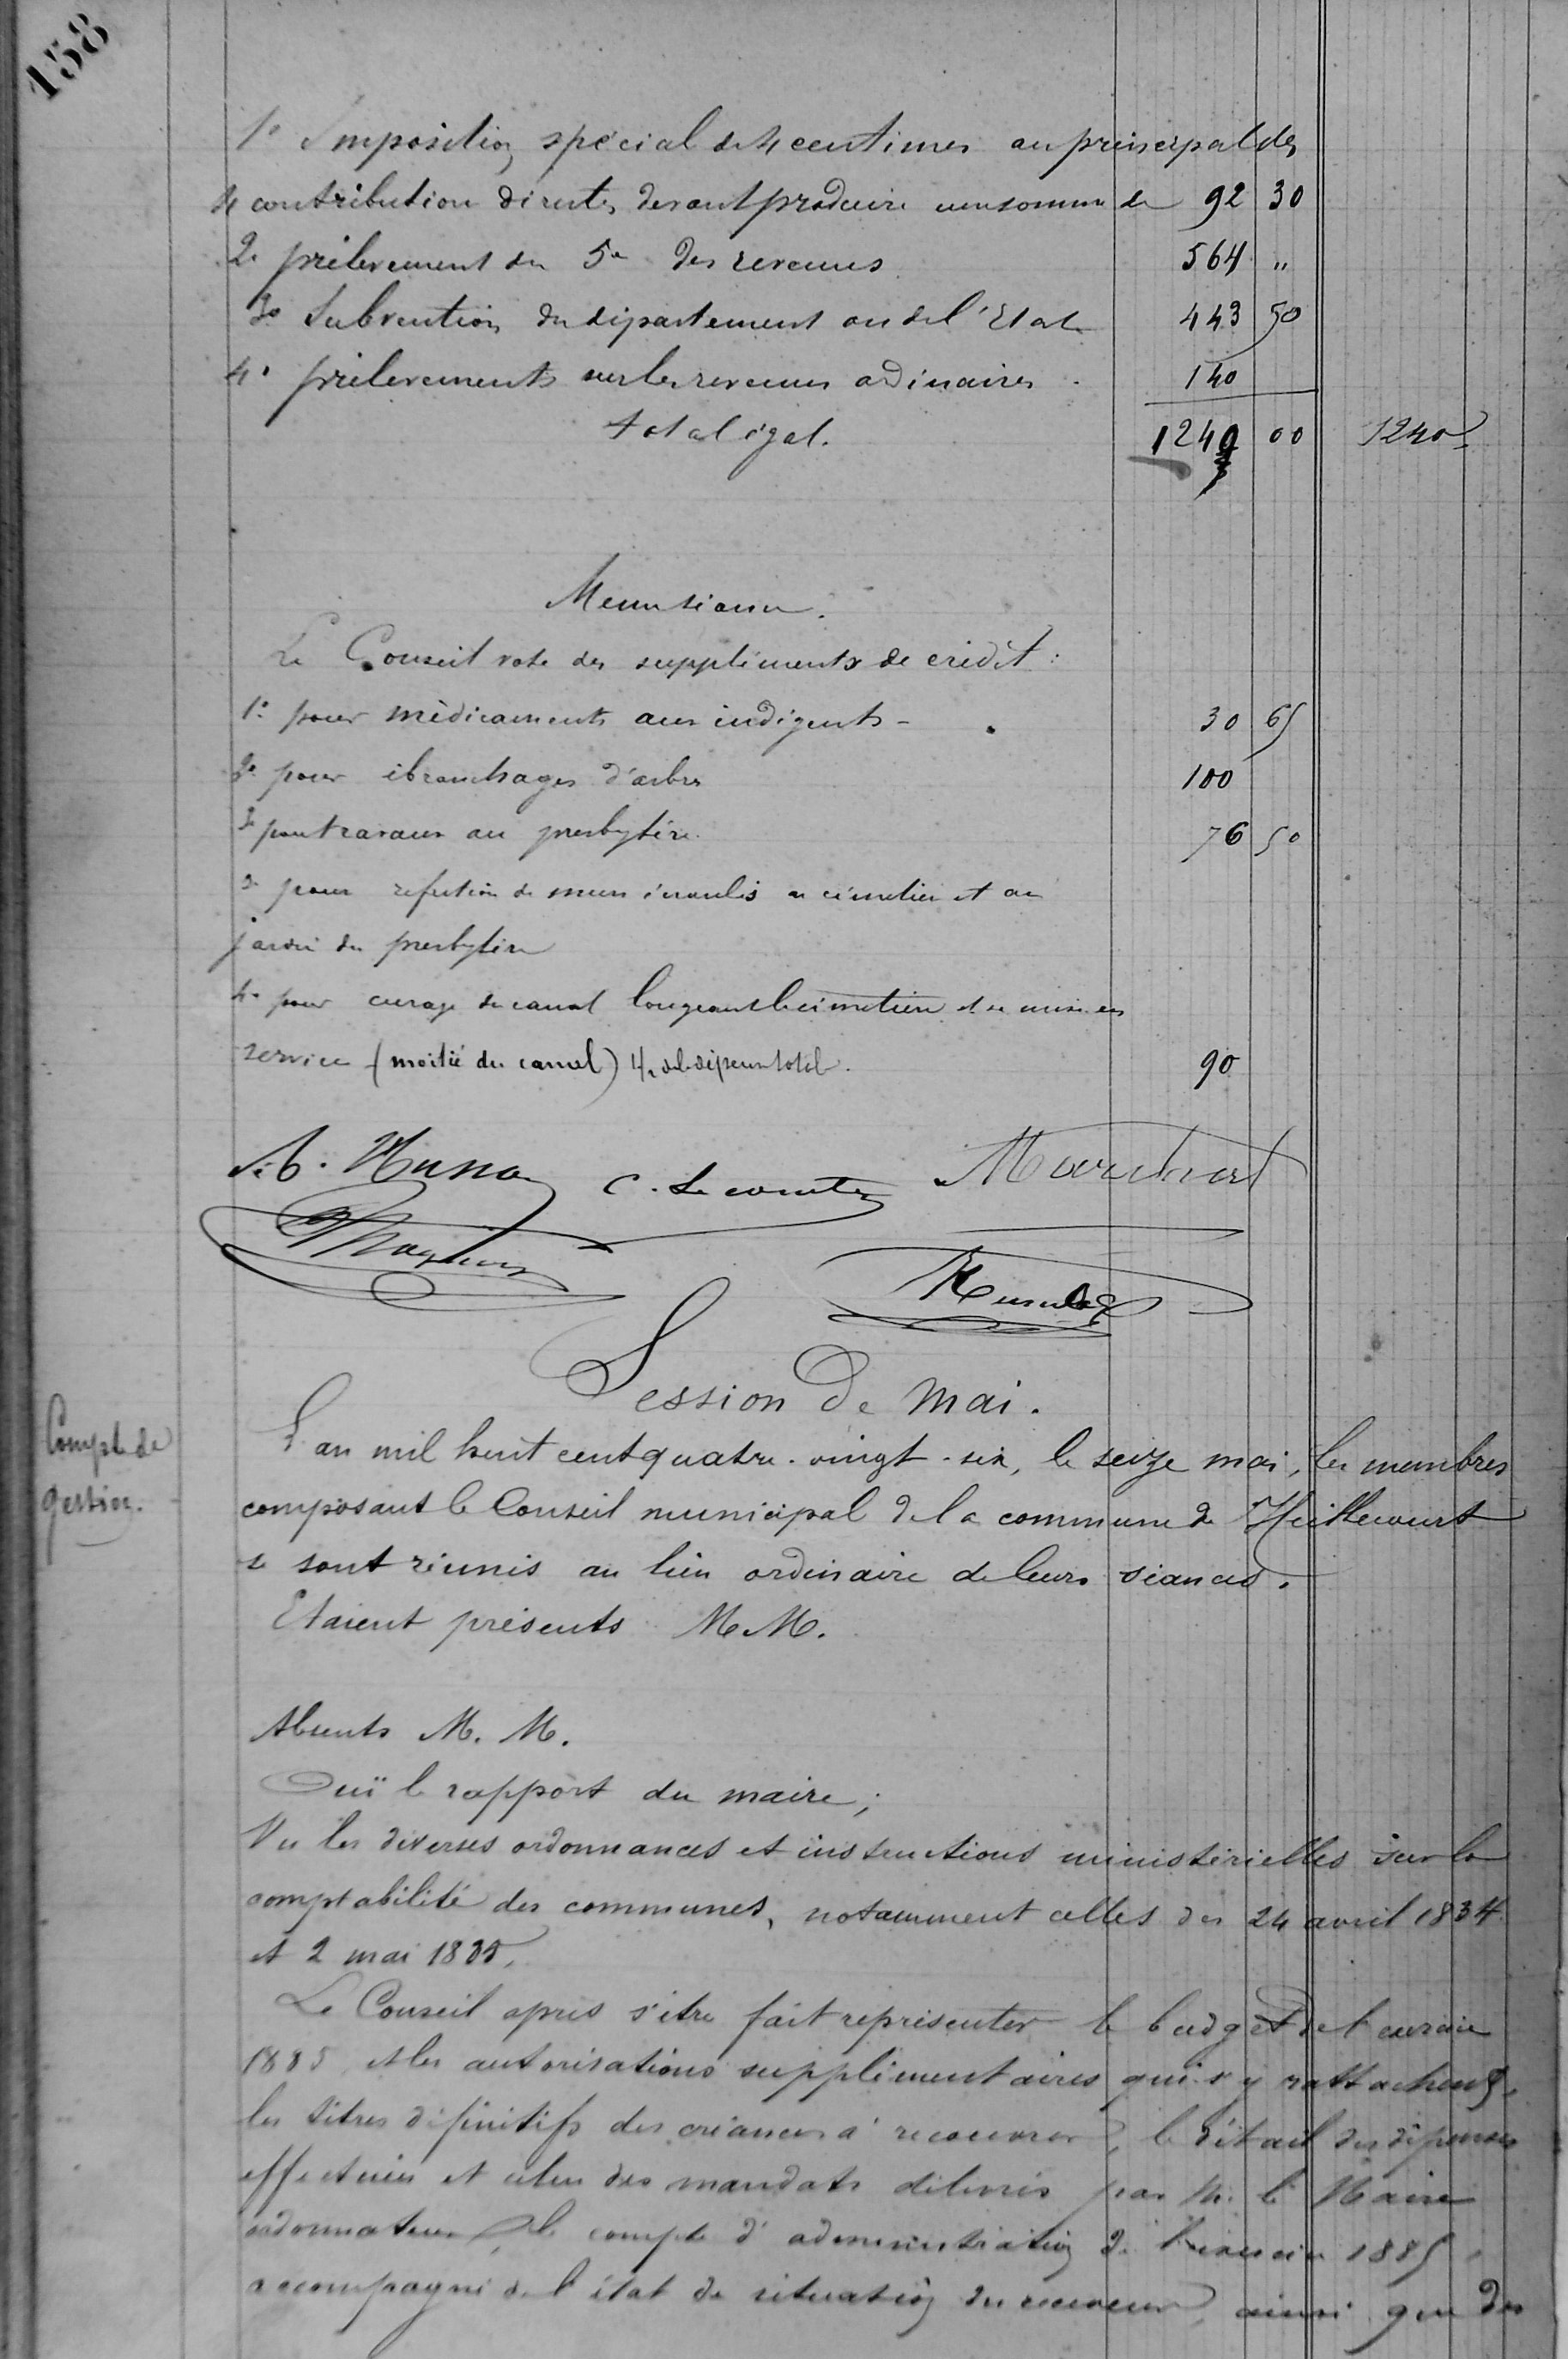 158
1° Imposition spécial de 4 centimes au principal des
4 contribution directes devant produire une somme de 92 30
2° prélèvement du 5e des revenus 564 "
3° Subvention du département ou de l'Etat 443 50
4° prélèvements sur les revenus ordinaires. 140
total égal. 1240 00 1240
Le Conseil vote des suppléments de crédit :
1° pour médicaments aux indigents - 30 65
2° pour ébranchages d'arbres 100
3° pour travaux au presbytère. 76 50
3° pour refection de murs écroulés au cimetière et au
jardin du presbytère
4° pour curage du canal longeant le cimetière et sa mise en
service (moitié du canal) 1/2 de la dépense totale. 90
C. Lecomte Marchal
Session de Mai.
Compte de
gestion.
L'an mil huit cent quatre-vingt-six, le seize mai, les membres
composant le Conseil municipal de la commune de Heillecourt
se sont réunis au lieu ordinaire de leurs séances.
Etaient présents M.M.
Absents M. M.
Ouï le rapport du maire ;
Vu les diverses ordonnances et instructions ministérielles sur la
comptabilité des communes, notamment celles des 24 avril 1834
et 2 mai 1835,
Le Conseil après s'être fait représenter le budget de l'exercice
1885 et les autorisations supplémentaires qui s'y rattachent,
les titres définitifs des créances à recouvrer, le détail des dépenses
effectuées et celui des mandats délivrés par M. le Maire
ordonnateur, le compte d'administration de l'exercice 1885,
accompagné de l'état de situation du receveur, ainsi que des